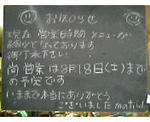 お知らせ
営業時間 メニューが
なっております
御了承下さい
尚 営業は8月18日(土)まで
の予定です
いままで本当にありがとう
ございました